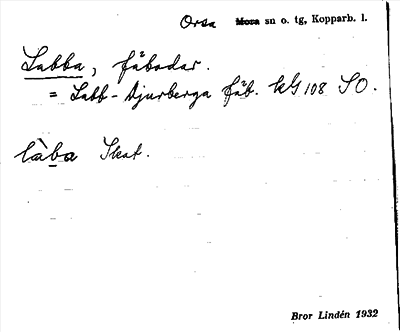 Orsa Mora sn o. tg, Kopparb. l.
Labba, fäbodar.
= Labb-Djurberga fäb. kG 108 SO.
làba Skat.
Bror Lindén 1932